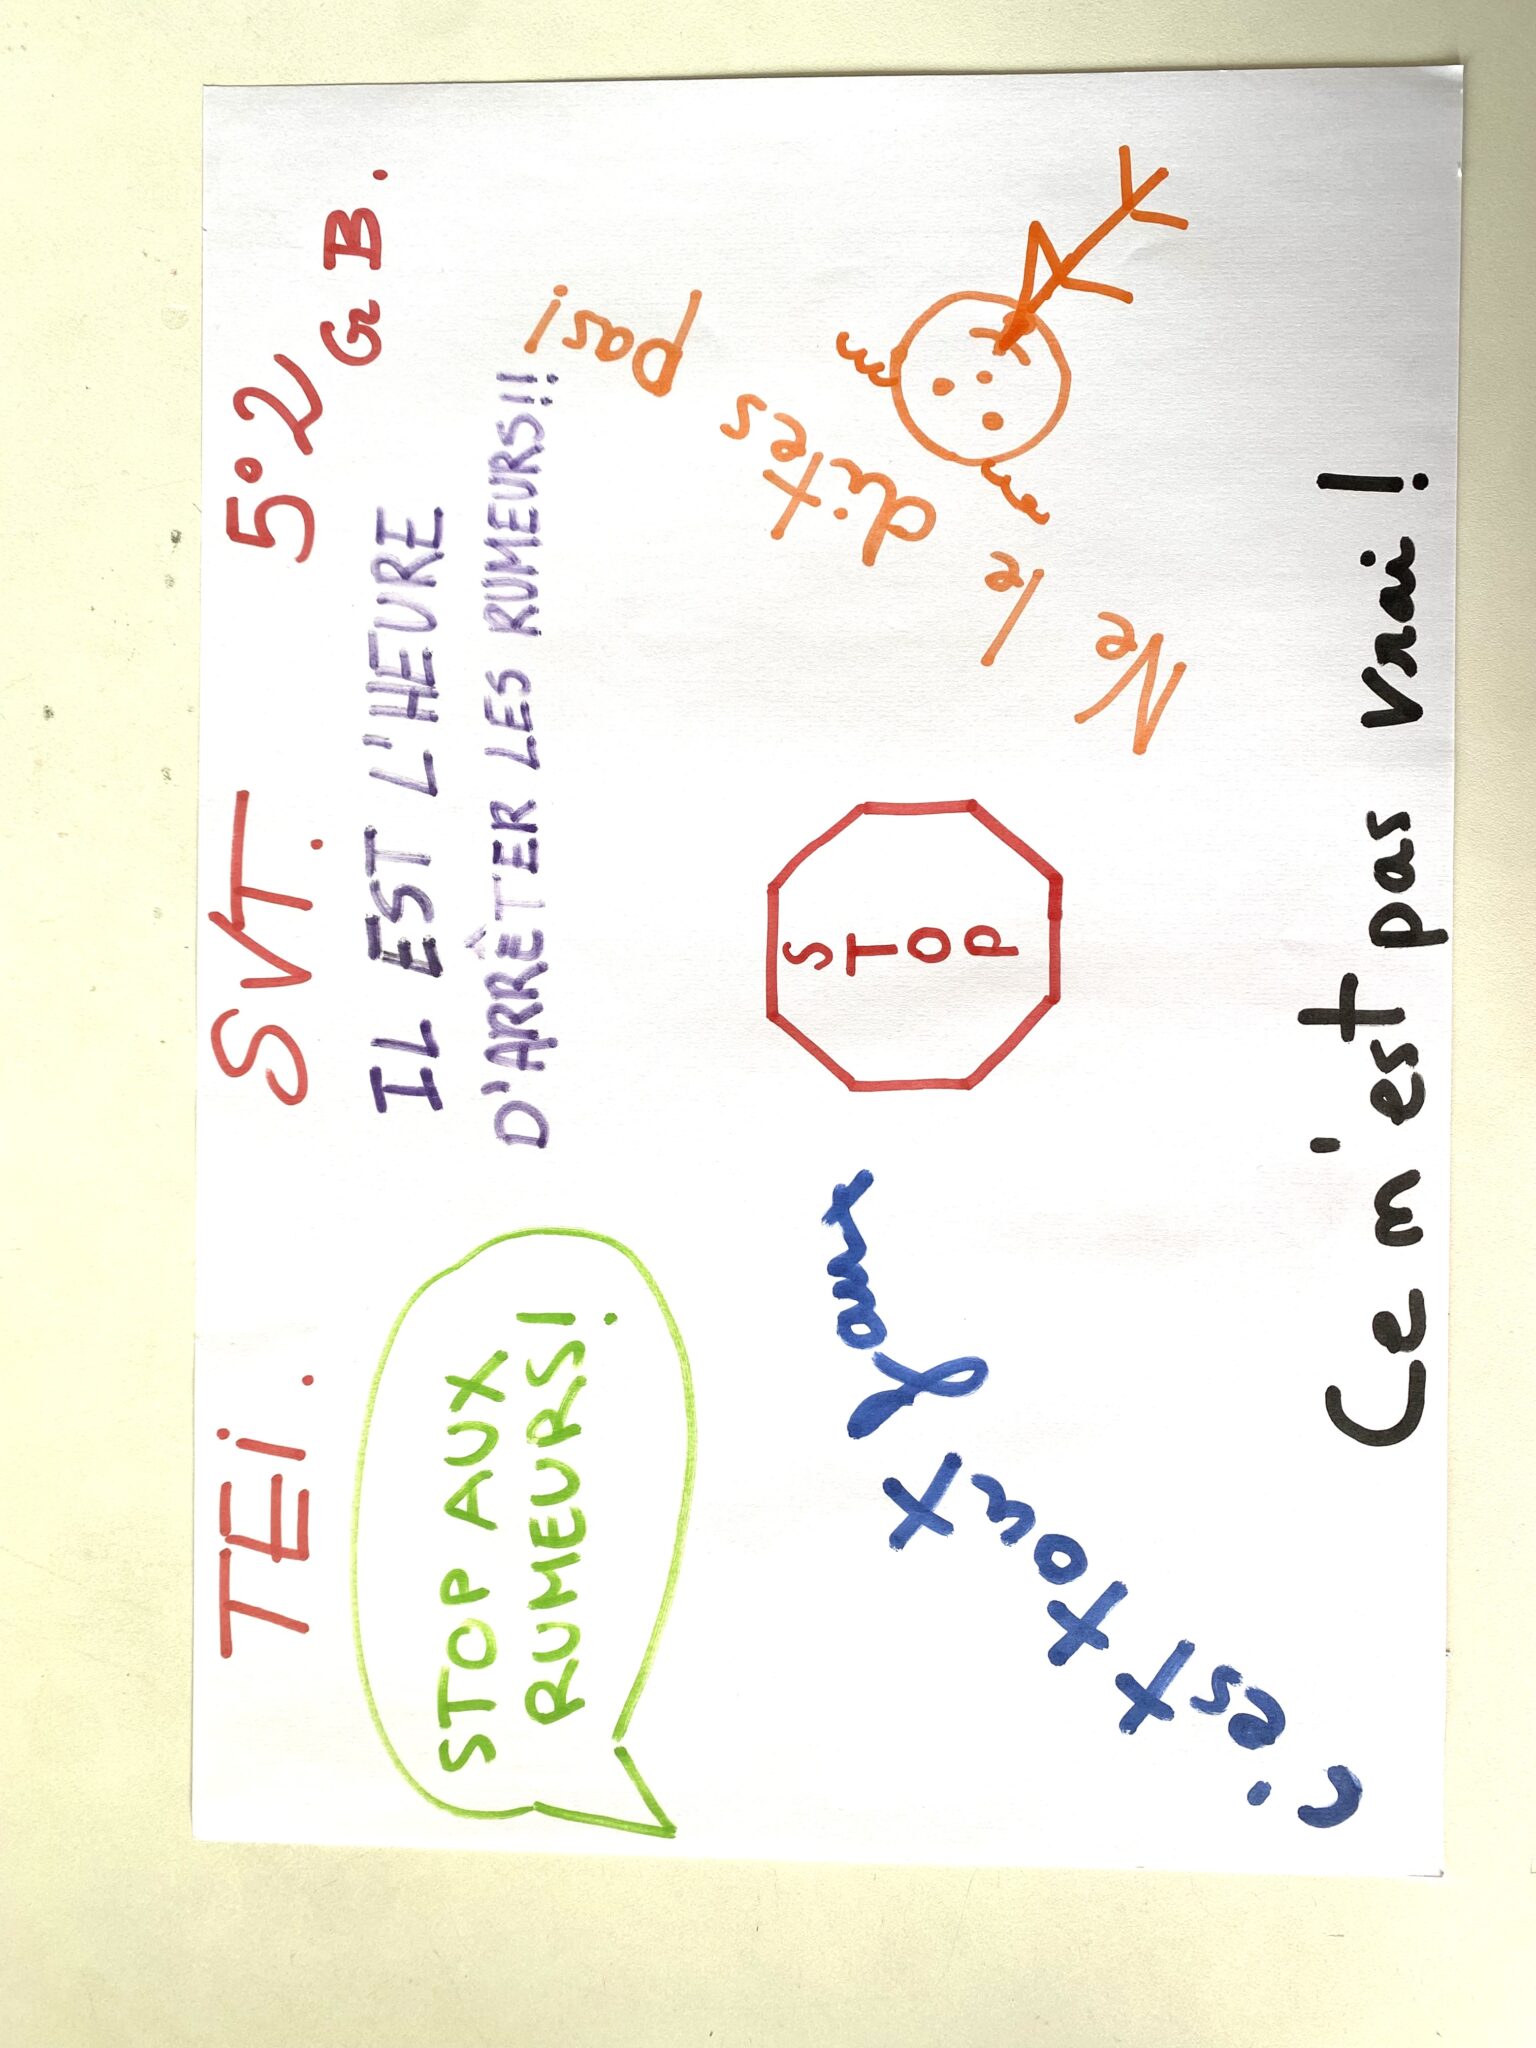 TEi.
SVT.
5°2
Gr B.
STOP AUX
RUMEURS!
IL EST L'HEURE
D'ARRÊTER LES RUMEURS!!
Ne le dites pas!
STOP
c'est tout faux
Ce n'est pas vrai !